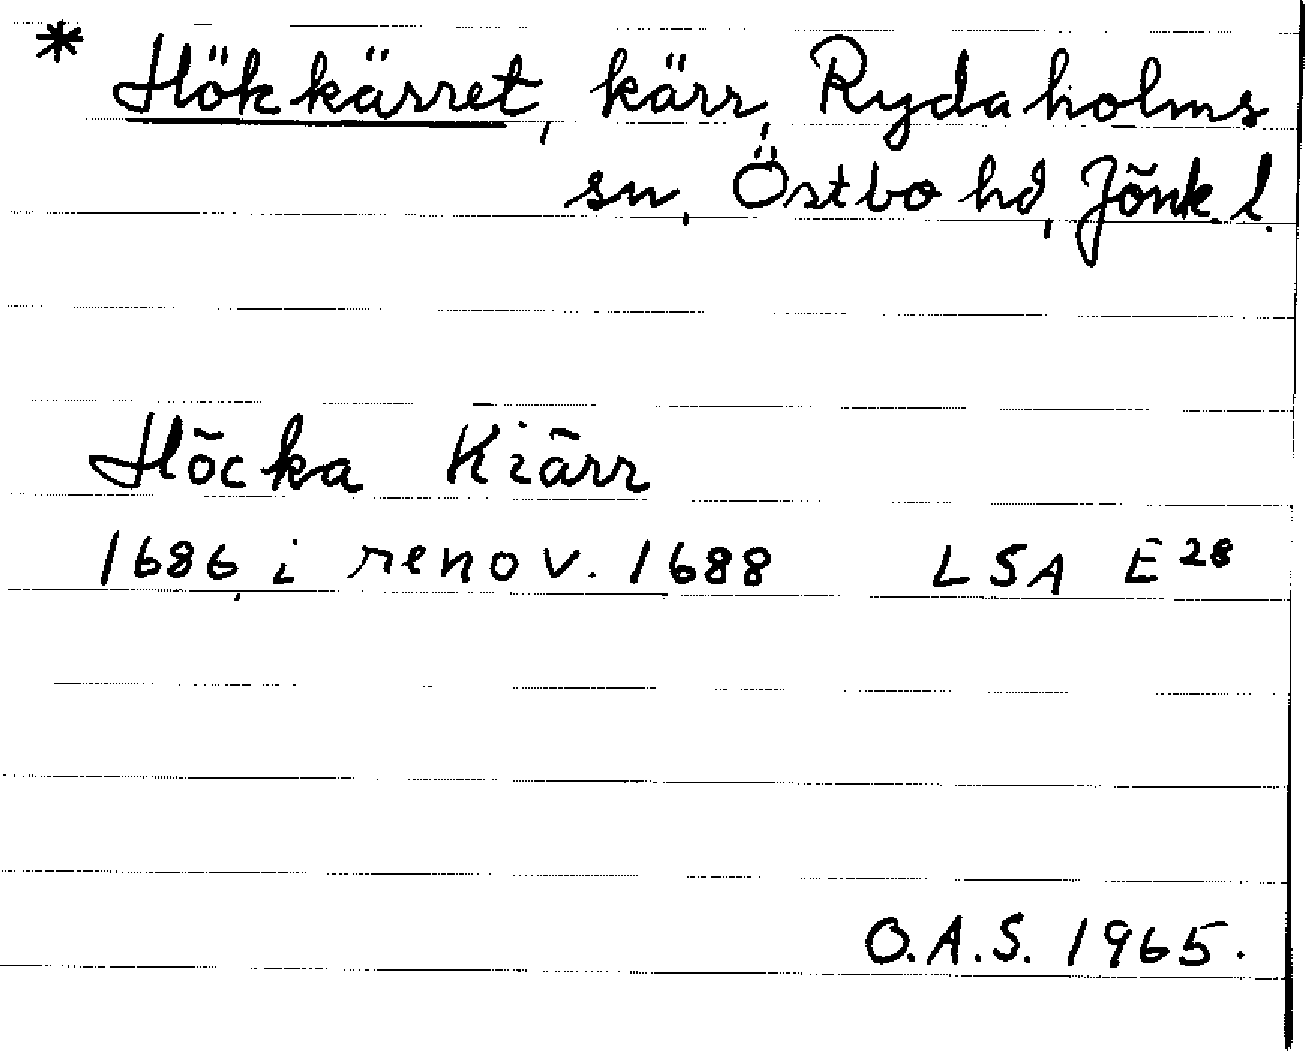 * Hökkärret, kärr, Rydaholms
sn, Östbo hd, Jõnk. l.
Hõcka Kiärr
1686, i renov. 1688 LSA E 28
O.A.S. 1965.